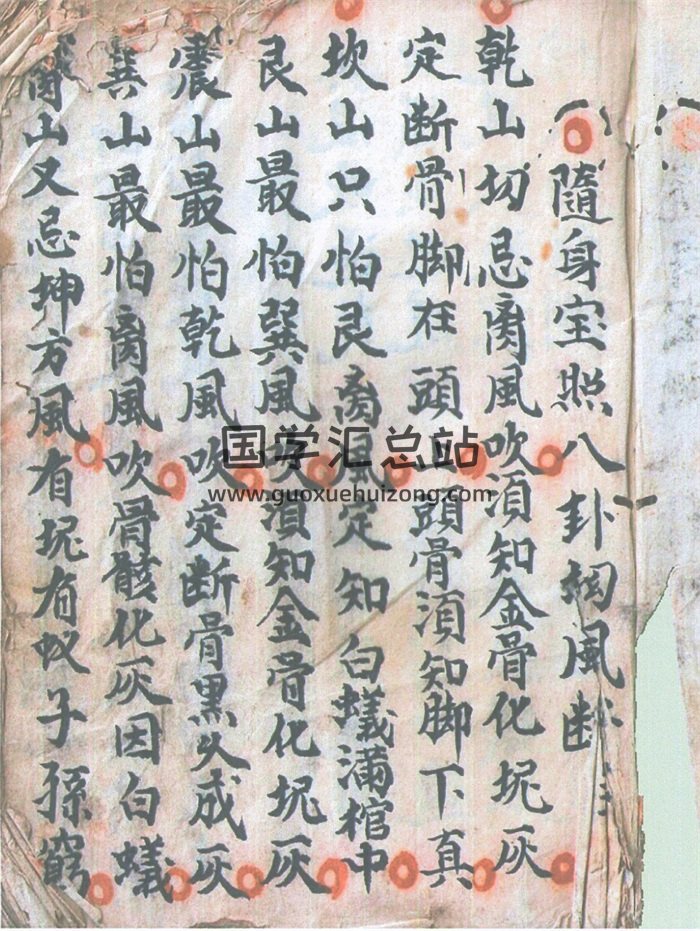 隨身宝照八卦坳風断
乾山切忌离風吹須知金骨化坭灰
定断骨脚在頭上頭骨須知脚下真
坎山只怕艮离風定知白蟻滿棺中
艮山最怕巽風吹須知金骨化坭灰
震山最怕乾風吹定断骨黑火成灰
巽山最怕离風吹骨骸化灰因白蟻
离山又忌坤方風有坭有蚁子孫窮
国学汇总站
www.guoxuehuizong.com